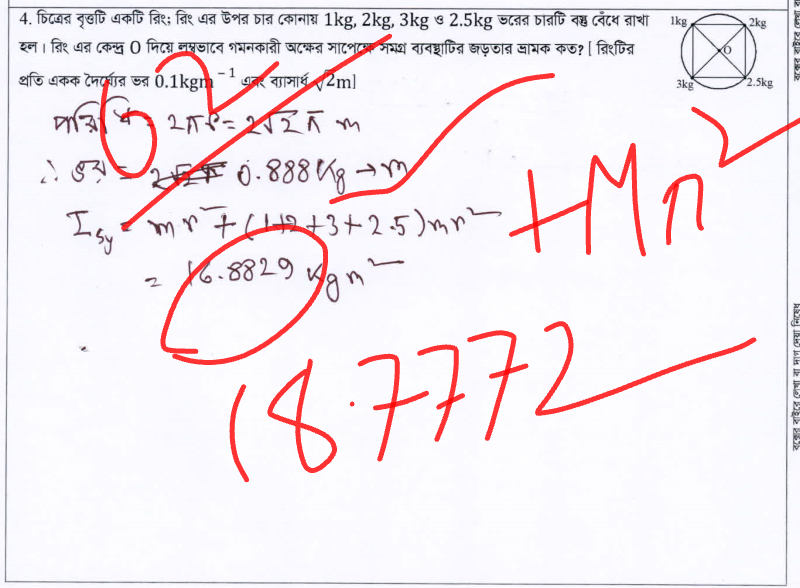 4. চিত্রের বৃত্তটি একটি রিং; রিং এর উপর চার কোনায় 1kg, 2kg, 3kg ও 2.5kg ভরের চারটি বস্তু বেঁধে রাখা
হল। রিং এর কেন্দ্র O দিয়ে লম্বভাবে গমনকারী অক্ষের সাপেক্ষে সমগ্র ব্যবস্থাটির জড়তার ভ্রামক কত? [ রিংটির
প্রতি একক দৈর্ঘ্যের ভর 0.1kgm⁻¹ এবং ব্যাসার্ধ √2m]
1kg
2kg
O
3kg
2.5kg
পরিধি = 2πr = 2√2π m
∴ ভর = 0.888 kg → m
I sy = mr² + (1+2+3+2.5)mr²
= 16.8829 kgm²
+Mr²
18.7772
বক্সের বাইরে লেখা বা দাগ দেয়া নিষেধ